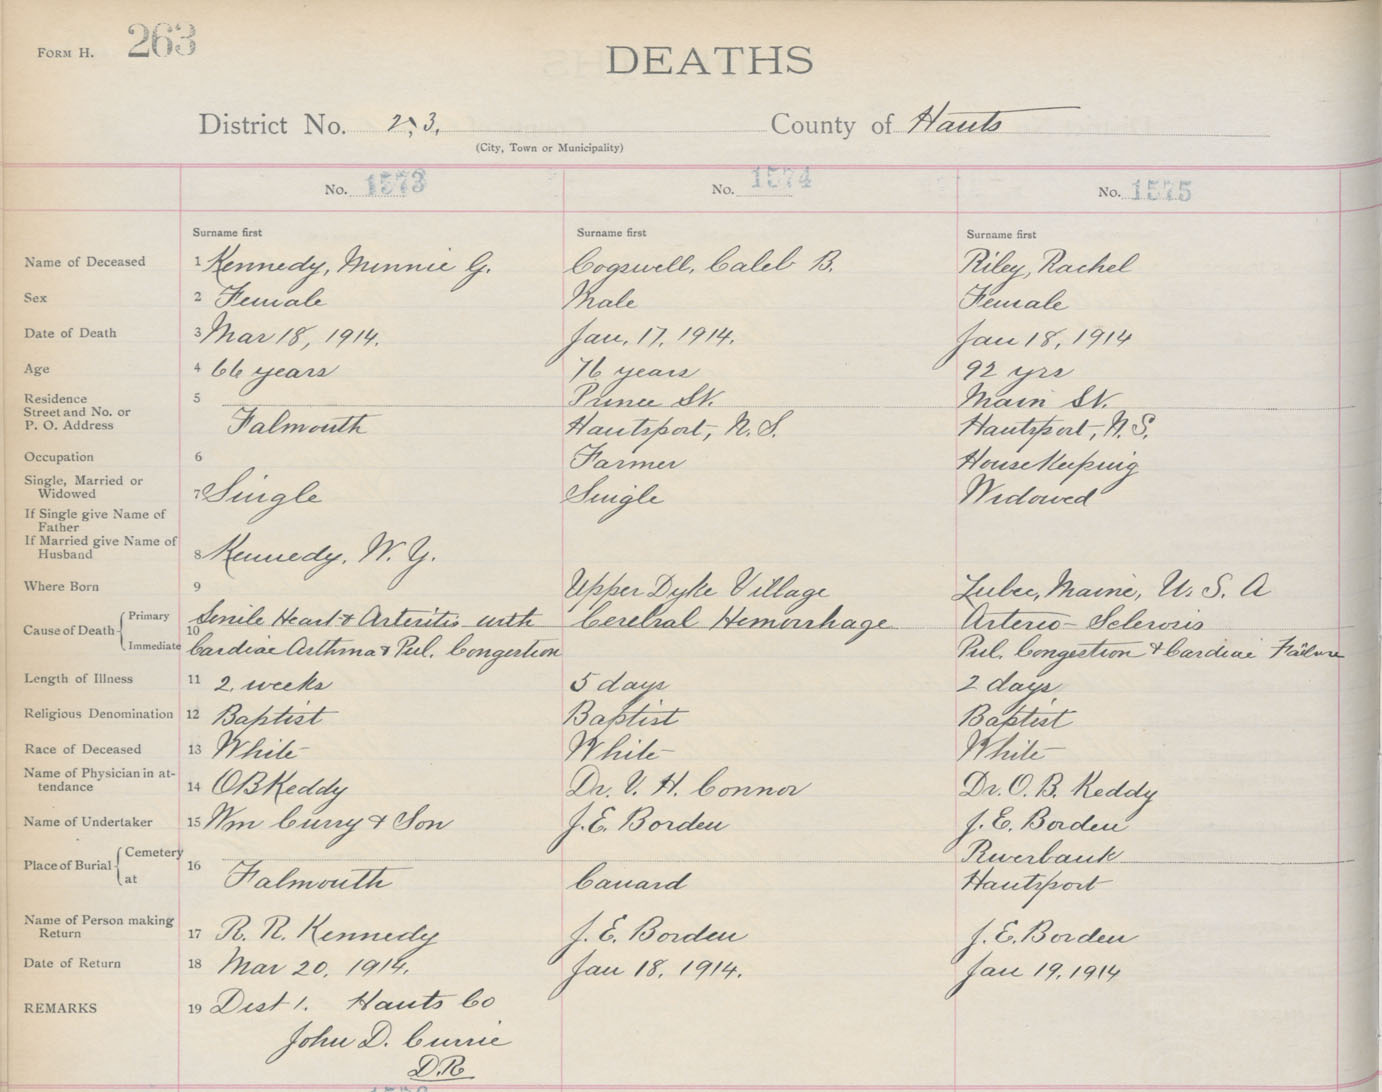 FORM H. 263
DEATHS
District No. 2, 3, County of Hants
(City, Town or Municipality)
No. 1573 No. 1574 No. 1575
Surname first Surname first Surname first
Name of Deceased 1 Kennedy, Minnie G. Cogswell, Caleb B. Riley, Rachel
Sex 2 Female Male Female
Date of Death 3 Mar 18, 1914. Jan. 17, 1914. Jan 18, 1914
Age 4 66 years 76 years 92 yrs
Residence 5 Prince St. Main St.
Street and No. or
P. O. Address Falmouth Hantsport, N. S. Hantsport, N. S.
Occupation 6 Farmer Housekeeping
Single, Married or
Widowed 7 Single Single Widowed
If Single give Name of
Father
If Married give Name of
Husband 8 Kennedy, W. Y.
Where Born 9 Upper Dyke Village Lubec, Maine, U. S. A
Cause of Death Primary 10 Senile Heart & Arteritis with Cerebral Hemorrhage Arterio-Sclerosis
Immediate Cardiac Asthma & Pul. Congestion Pul. Congestion & Cardiac Failure
Length of Illness 11 2 weeks 5 days 2 days
Religious Denomination 12 Baptist Baptist Baptist
Race of Deceased 13 White White White
Name of Physician in at-
tendance 14 OBKeddy Dr. V. H. Connor Dr. O. B. Keddy
Name of Undertaker 15 Wm Curry & Son J. E. Borden J. E. Borden
Place of Burial Cemetery 16 Riverbank
at Falmouth Canard Hantsport
Name of Person making
Return 17 R. R. Kennedy J. E. Borden J. E. Borden
Date of Return 18 Mar 20, 1914. Jan 18, 1914. Jan 19, 1914
REMARKS 19 Dist 1. Hants Co
John D. Currie
D.R